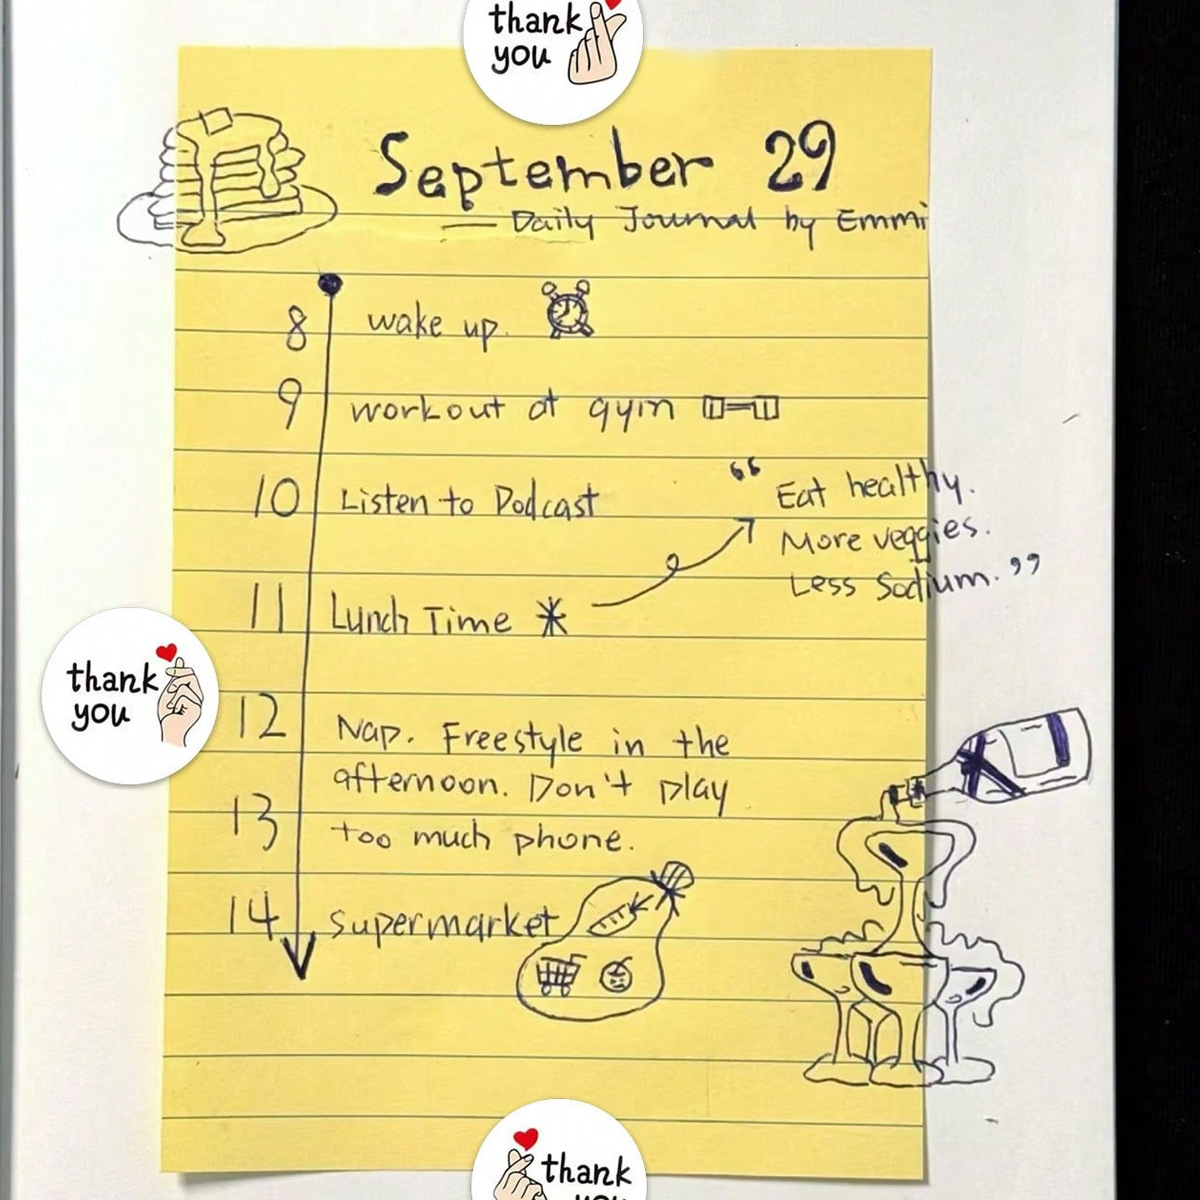 thank
you
September 29
— Daily Journal by Emmi
8 wake up.
9 workout at gym
10 Listen to Podcast
“ Eat healthy.
More veggies.
Less Sodium. ”
11 Lunch Time *
thank
you
12 Nap. Freestyle in the
afternoon. Don't play
13 too much phone.
14 supermarket
thank
you